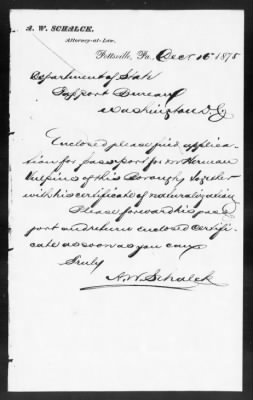 A. W. SCHALCK,
Attorney-at-Law,
Pottsville, Pa., Dec 16th 1875
Department of State
Passport Bureau
Washington D. C.
Enclosed please find applica-
tion for passport for Mr Herman
of this Borough together
with his certificate of naturalization
Please forward his pass
port and return enclosed certifi-
cate as soon as you can
Truly
A. W. Schalck